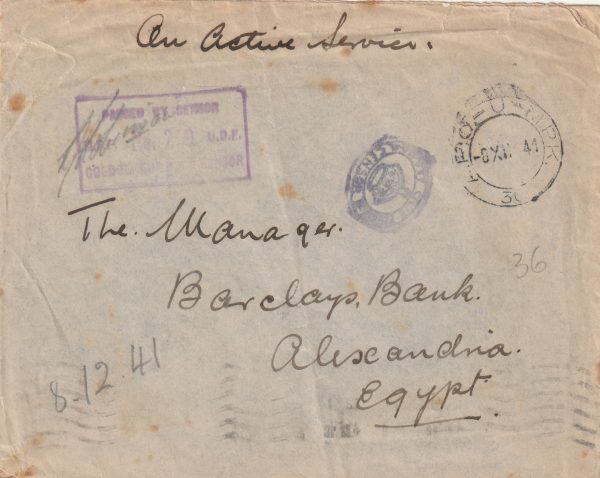 On Active Service.
PASSED BY CENSOR
U.D.F.
APO-U-MPK
-8 XII 41
36
The. Manager.
36
Barclays, Bank.
Alexandria.
Egypt.
8-12-41